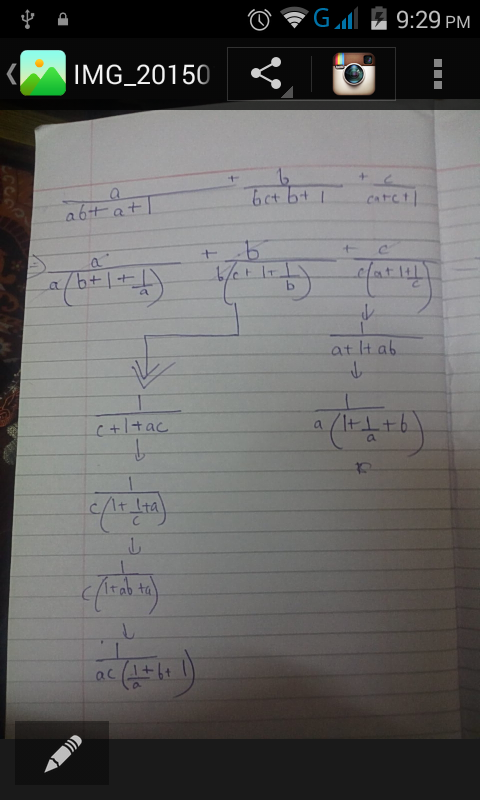 9:29 PM
IMG_20150
a/(ab+a+1) + b/(bc+b+1) + c/(ca+c+1)
=> a/(a(b+1+1/a)) + b/(b(c+1+1/b)) + c/(c(a+1+1/c))
1/(a+1+ab)
1/(c+1+ac)
1/(a(1+1/a+b))
1/(c(1+1/c+a))
1/(c(1+ab+a))
1/(ac(1/a+b+1))